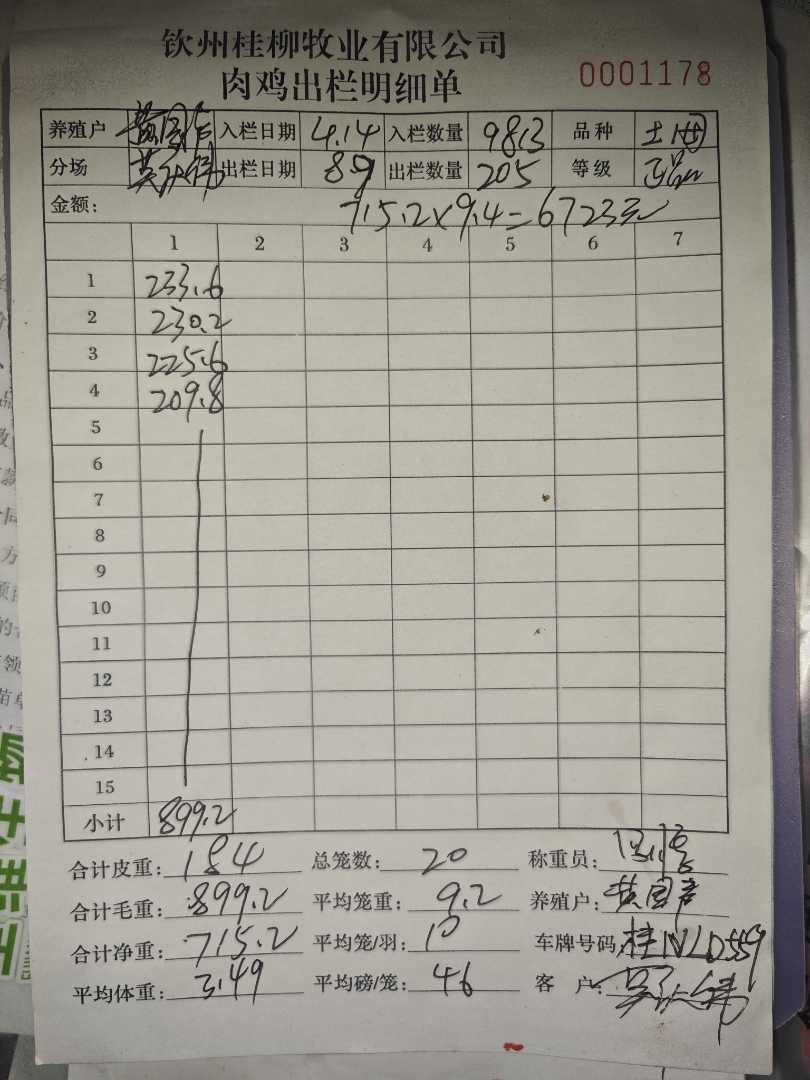 钦州桂柳牧业有限公司
肉鸡出栏明细单 0001178
养殖户 入栏日期 4.14 入栏数量 9813 品种 土
分场 出栏日期 8.9 出栏数量 205 等级
金额: 715.2×9.4=6723元
1 2 3 4 5 6 7
1 233.6
2 230.2
3 225.6
4 209.8
5
6
7
8
9
10
11
12
13
14
15
小计 899.2
合计皮重: 184 总笼数: 20 称重员:
合计毛重: 899.2 平均笼重: 9.2 养殖户: 黄国彦
合计净重: 715.2 平均笼/羽: 10 车牌号码: 桂NLD559
平均体重: 3.49 平均磅/笼: 46 客户: